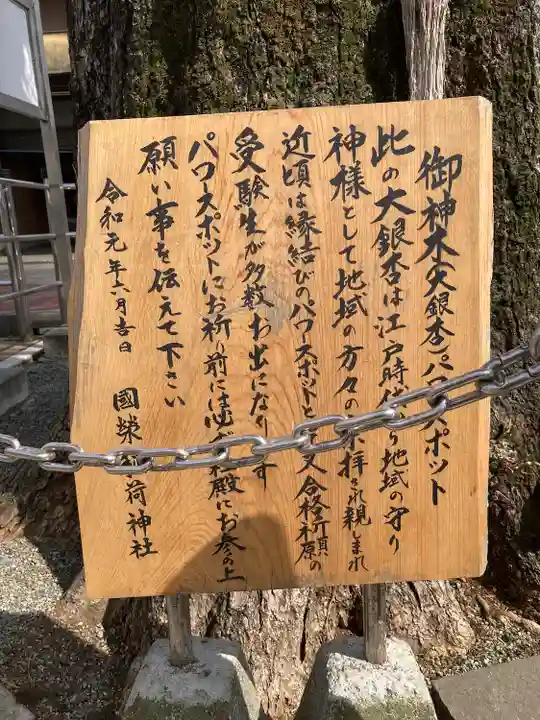 御神木(大銀杏)パワースポット
此の大銀杏は江戸時代から地域の守り
神様として地域の方々の 拝され親しまれ
近頃は縁結びのパワースポットと 又合格祈願の
受験生が多数お出になります
パワースポットにお祈り前には必ず社殿にお参の上
願い事を伝えて下さい
令和元年六月吉日 國榮稲荷神社